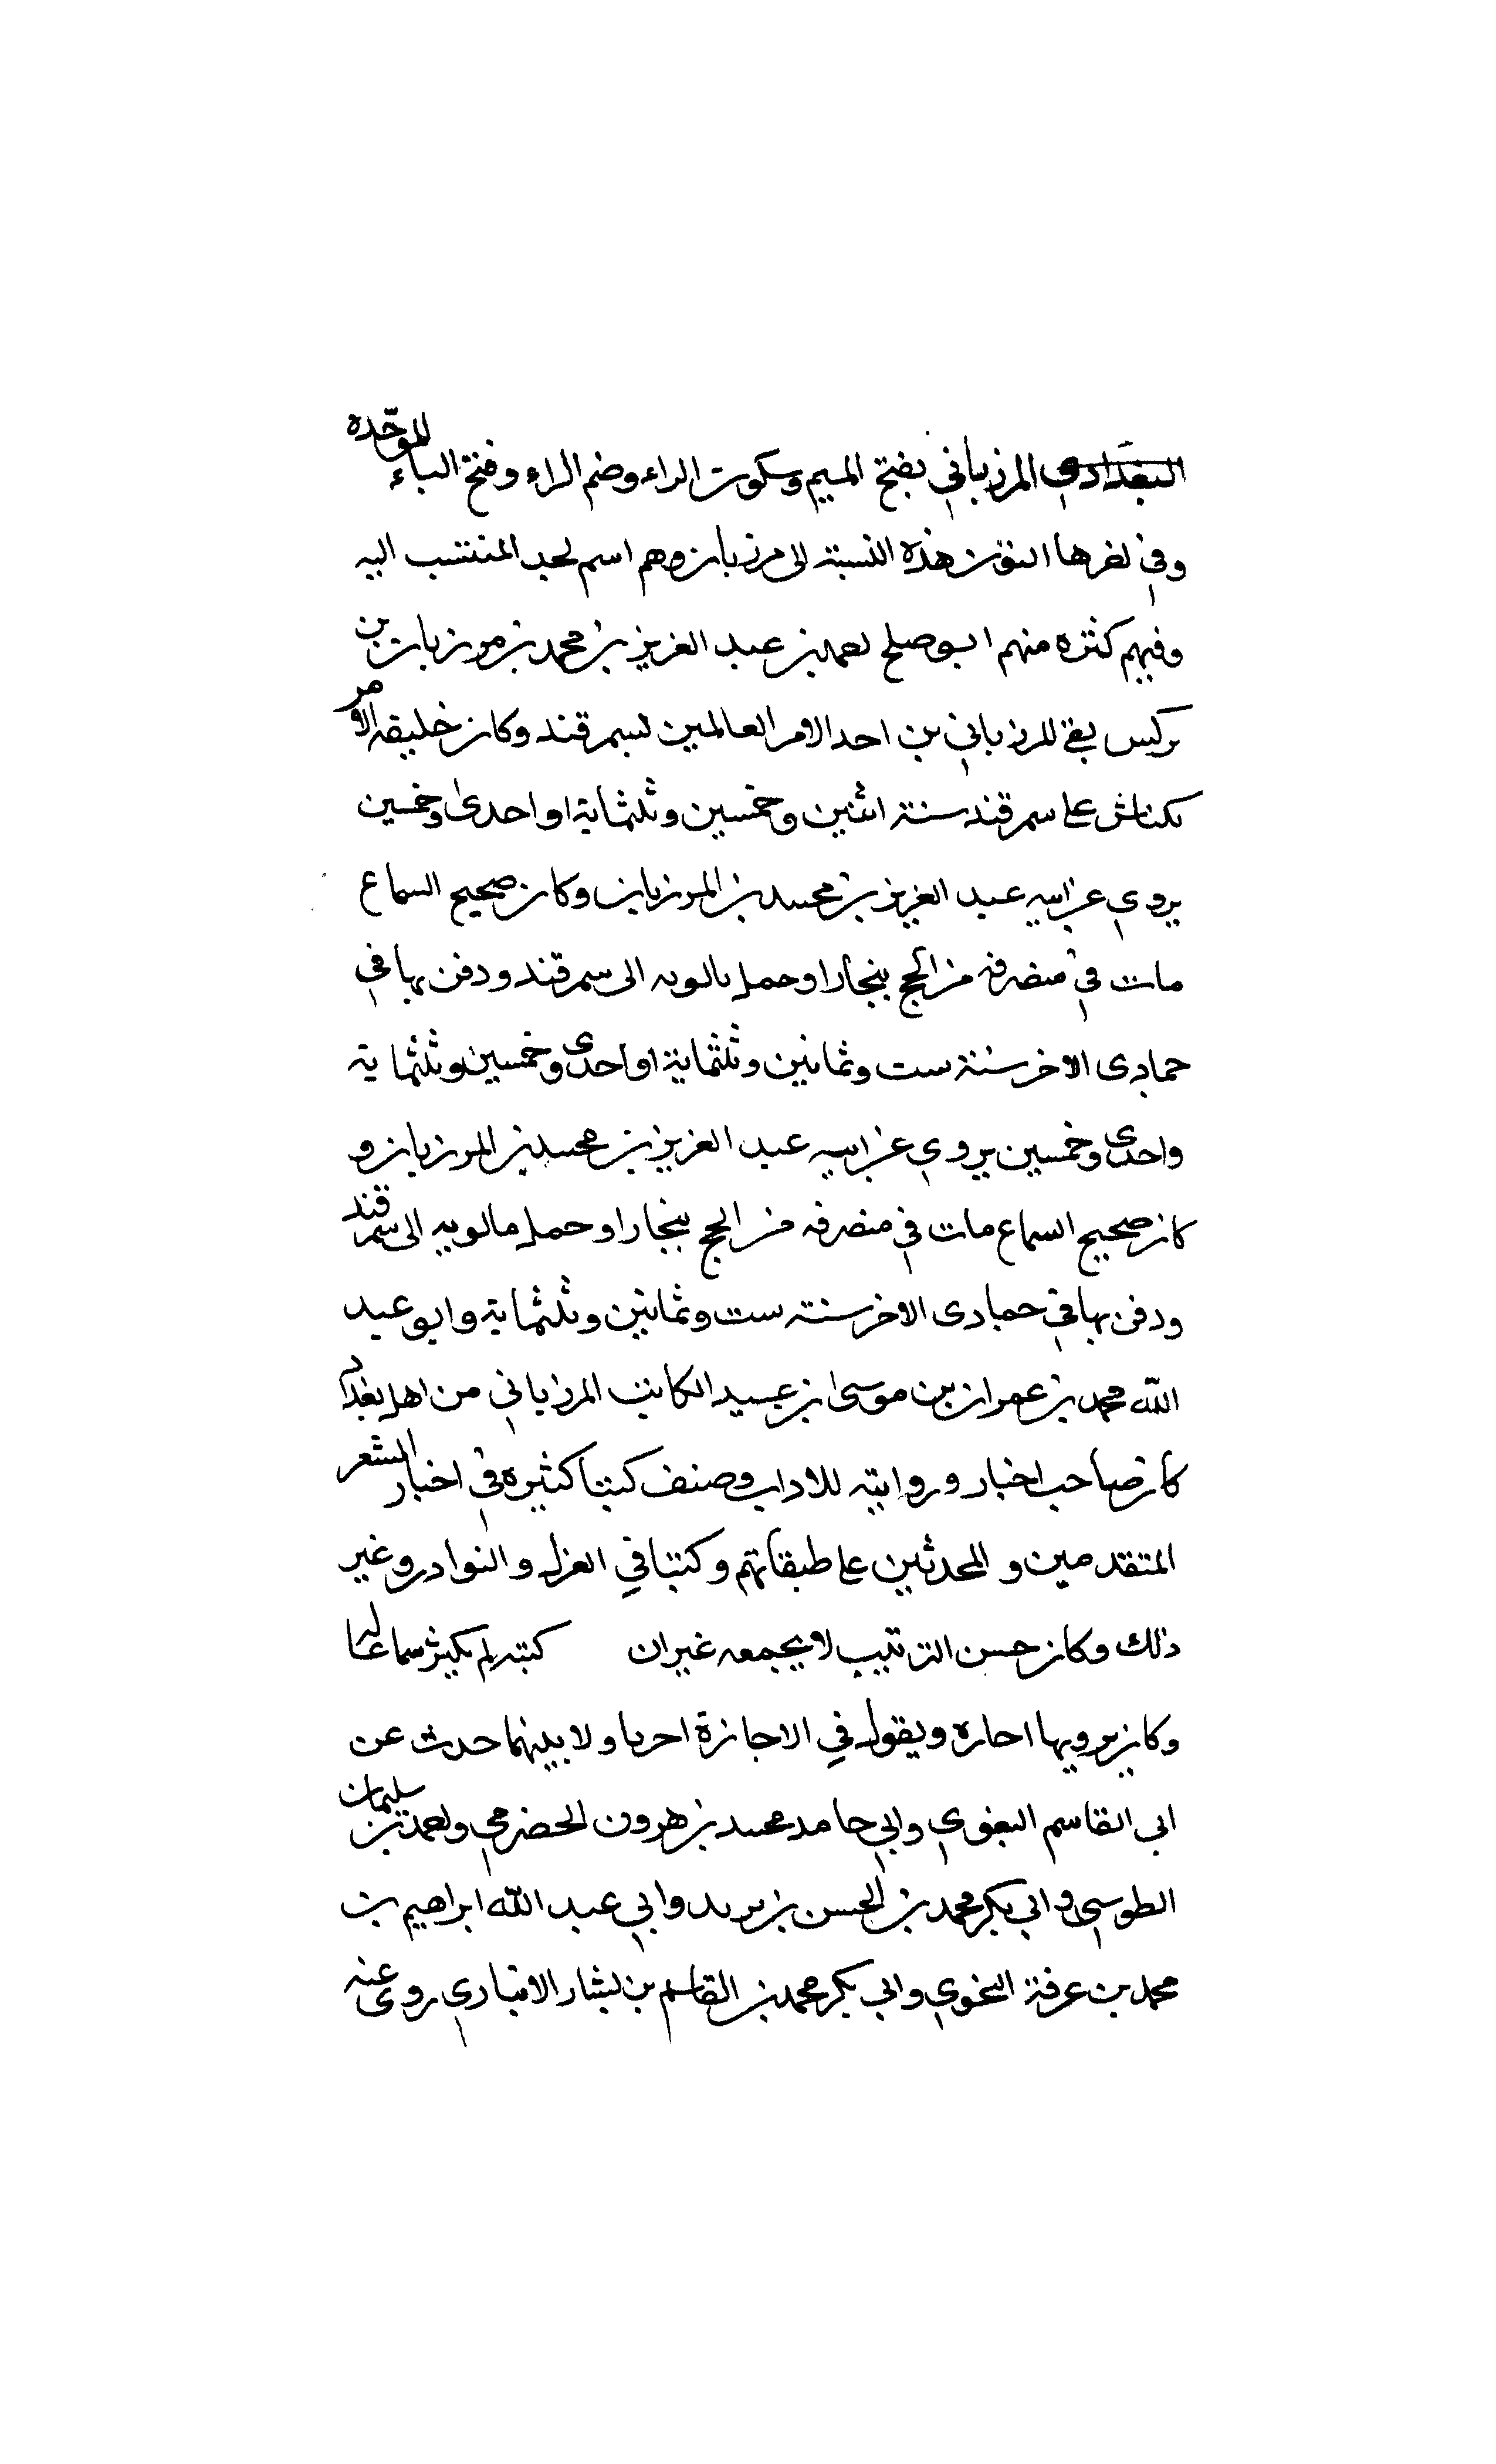 البغدادي المرزباني بفتح الميم وسكون الراء وضم الزاء وفتح الباء الموحّدة
وفي اخرها النون هذه النسبة الى مرزبان وهم اسم لجد المنتسب اليه
وفيهم كثره منهم ابو صلح احمد بن عبد العزيز بن محمد بن مرزبان بن
تركس المرزباني بن احد الامر العالمين لسمرقند وكان خليفه الامر
بكتاش على سمرقند سنة اثنين وخمسين وثلثماية او احدى وخمسين
يروي عن ابيه عبد العزيز بن محمد بن المرزبان وكان صحيح السماع
مات في منصرفه من الحج ببخارا وحمل تالوبه الى سمرقند ودفن بها في
جمادى الاخر سنة ست وثمانين وثلثماية او احدى وخمسين وثلثماية
واحدى وخمسين يروي عن ابيه عبد العزيز بن محمد بن المرزبان و
كان صحيح السماع مات في منصرفه من الحج ببخارا وحمل مالوبه الى سمرقند
ودفن بها في جمادى الاخر سنة ست وثمانين وثلثماية وابو عبد
الله محمد بن عمران بن موسى بن عبيد الكاتب المرزباني من اهل بغداد
كان صاحب اخبار ورواية للاداب وصنف كتبا كثيرة في اخبار الشعر
المتقدمين والمحدثين على طبقاتهم وكتبا في الغزل والنوادر وغير
ذلك وكان حسن الترتيب لا يجمعه غير ان كتبه لم يكثر سماعا له
وكان يرويها احاره ويقول في الاجازة احربا ولا يبينهما حدث عن
ابي القاسم البغوي وابي حامد محمد بن هرون الحضرمي واحمد بن سليمان
الطوسي وابي بكر محمد بن الحسن بن دريد وابي عبد الله ابراهيم بن
محمد بن عرفة النحوي وابي بكر محمد بن القاسم بن بشار الانباري روى عنه